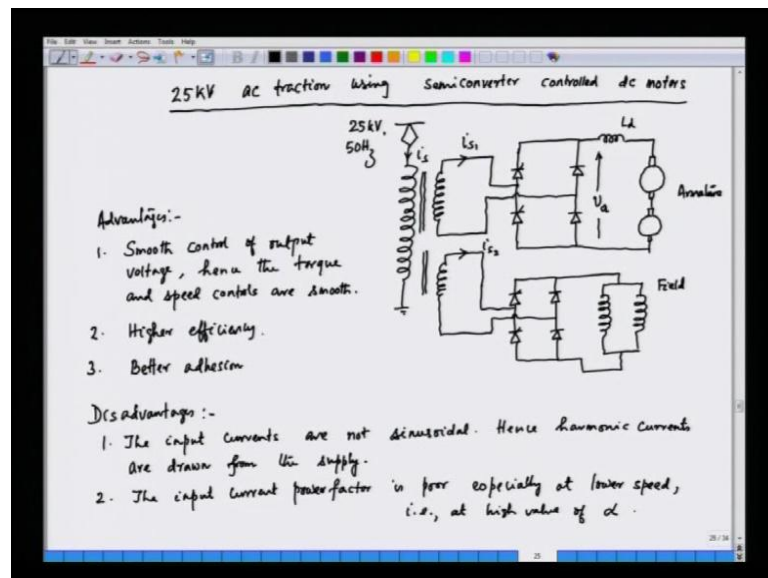 File Edit View Insert Actions Tools Help
25KV ac traction using Semiconverter controlled dc motors
25KV,
50Hz
is
is1
Ld
Va
Armature
Advantages:-
1. Smooth control of output
voltage, hence the torque
and speed controls are smooth.
is2
Field
2. Higher efficiency.
3. Better adhesion
Disadvantages :-
1. The input currents are not sinusoidal. Hence harmonic currents
are drawn from the supply.
2. The input current power factor is poor especially at lower speed,
i.e., at high value of α.
25